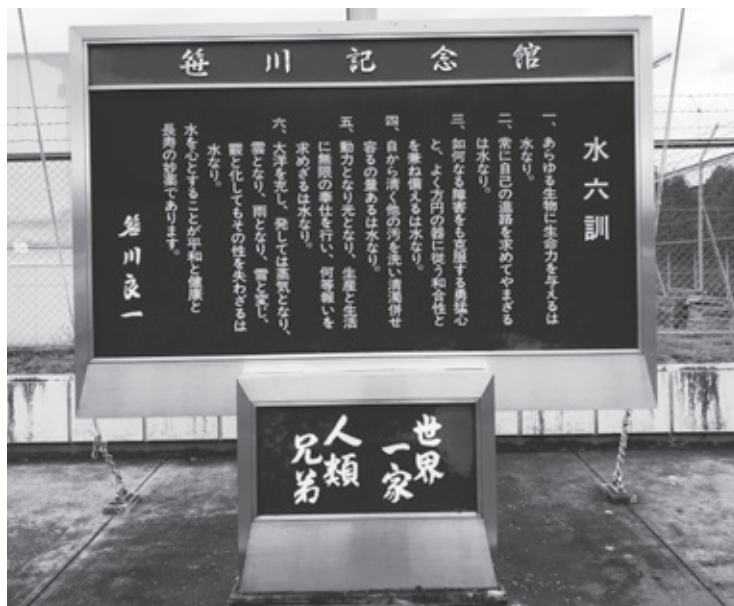 笹川記念館
水六訓
一、あらゆる生物に生命力を与えるは
水なり。
二、常に自己の進路を求めてやまざる
は水なり。
三、如何なる障害をも克服する勇猛心
と、よく方円の器に従う和合性と
を兼ね備えるは水なり。
四、自から清く他の汚を洗い清濁併せ
容るの量あるは水なり。
五、動力となり光となり、生産と生活
に無限の奉仕を行い、何等報いを
求めざるは水なり。
六、大洋を充し、発しては蒸気となり、
雲となり、雨となり、雪と変じ、
霰と化してもその性を失わざるは
水なり。
水を心とすることが平和と健康と
長寿の妙薬であります。
笹川良一
世界
一家
人類
兄弟